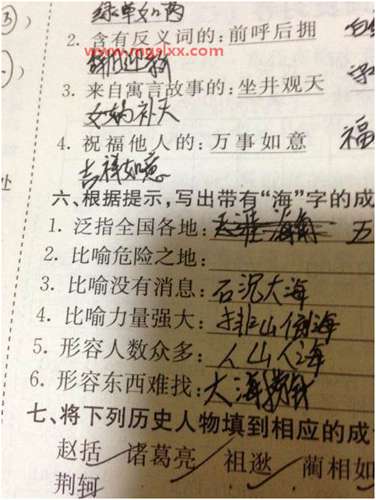 绿草如茵
2. 含有反义词的: 前呼后拥
www.mgslxx.com
辞旧迎新
3. 来自寓言故事的: 坐井观天
女娲补天
4. 祝福他人的: 万事如意 福
吉祥如意
处
六、根据提示,写出带有“海”字的成
1. 泛指全国各地: 天涯海角 五
2. 比喻危险之地:
3. 比喻没有消息: 石沉大海
4. 比喻力量强大: 排山倒海
5. 形容人数众多: 人山人海
6. 形容东西难找: 大海捞针
七、将下列历史人物填到相应的成
赵括 诸葛亮 祖逖 蔺相如
荆轲